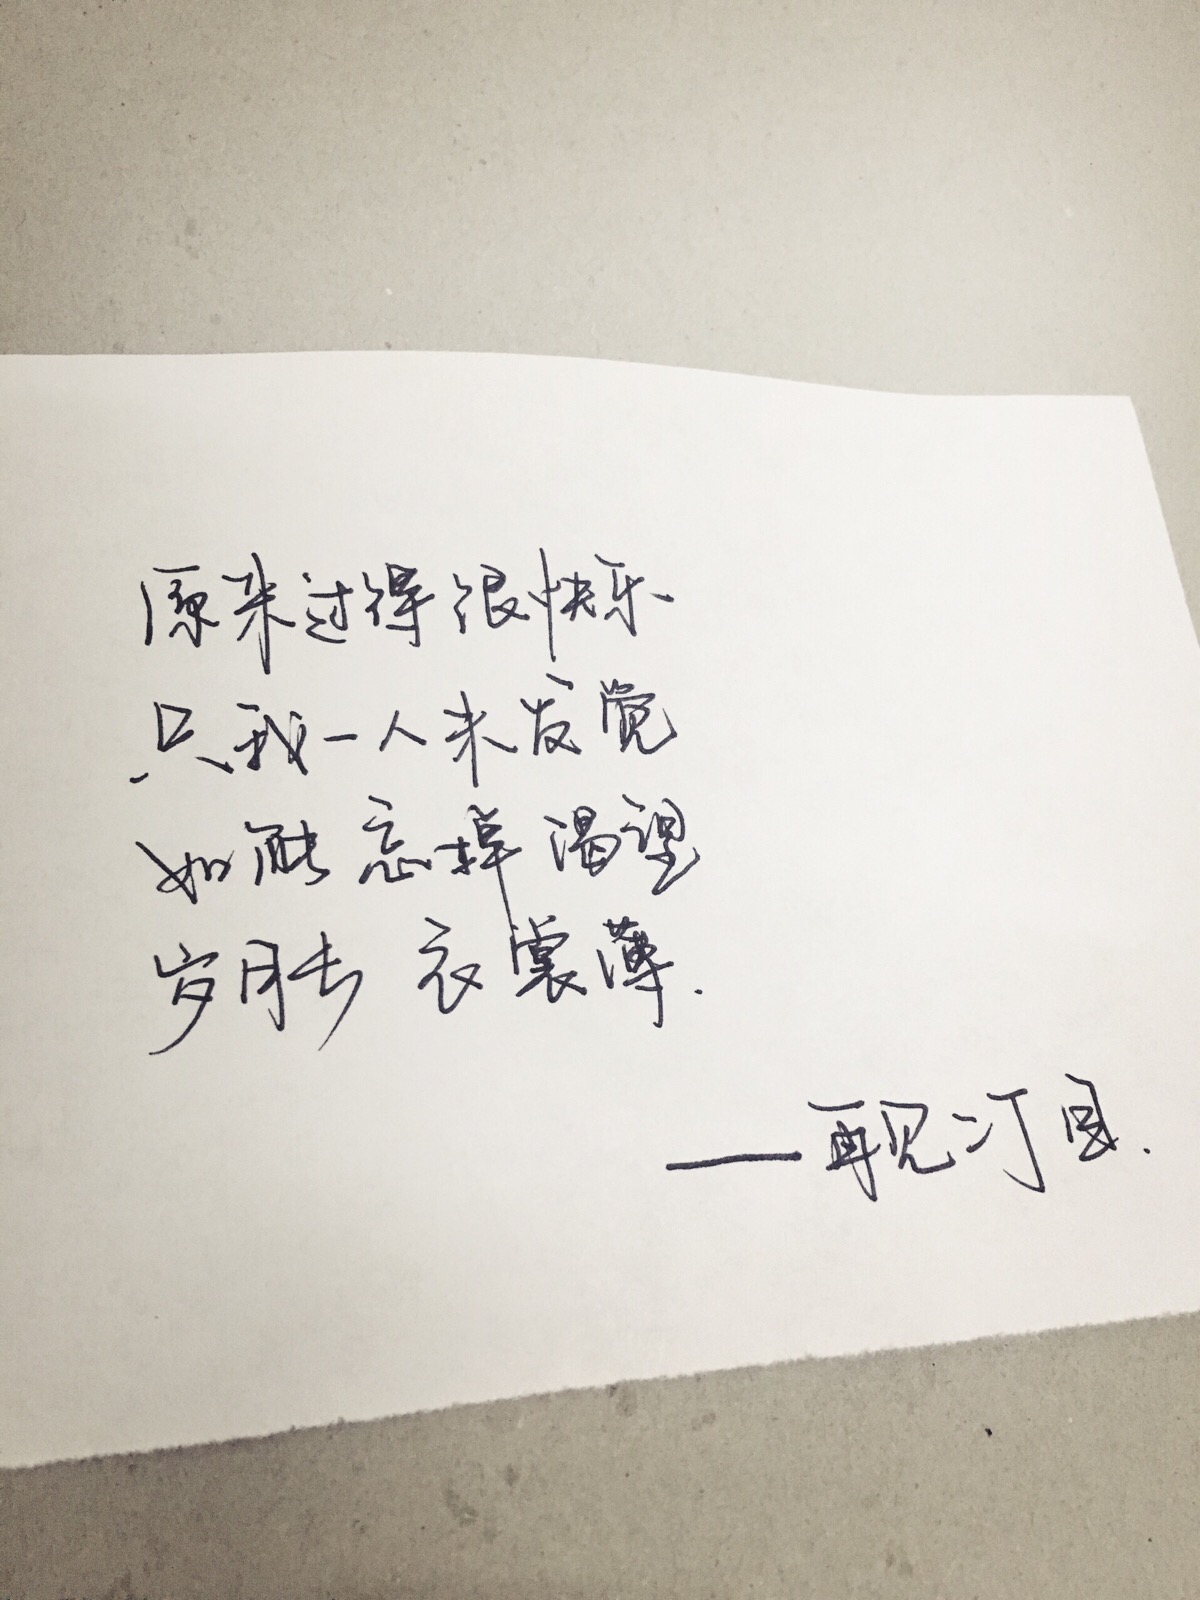 原来过得很快乐
只我一人未发觉
如能忘掉渴望
岁月长 衣裳薄.
——再见二丁目.